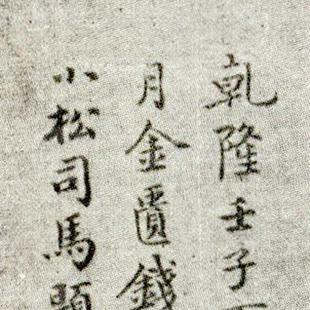 乾隆壬子
月金匱錢
小松司馬題